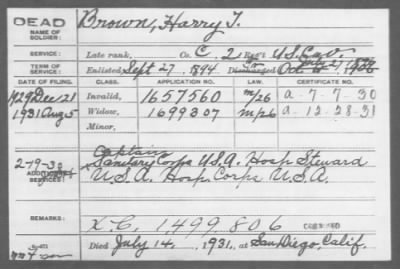 DEAD
NAME OF SOLDIER:
Brown, Harry T.
SERVICE:
Late rank, Co. C, 2 Reg't U.S. Cav
TERM OF SERVICE:
Enlisted Sept 27, 1894 Discharged
DATE OF FILING. CLASS. APPLICATION NO. LAW. CERTIFICATE NO.
1929 Dec 21 Invalid, 1657560 m/26 a. 7-7-30
1931 Aug 5 Widow, 1699307 mp26 a. 12-28-31
Minor,
2-19-30
ADDITIONAL SERVICES:
Captain
Sanitary Corps U.S.A. Hosp Steward
U.S.A. Hosp. Corps U.S.A.
REMARKS:
X.C. 1499806
Died July 14, 1931, at San Diego, Calif.